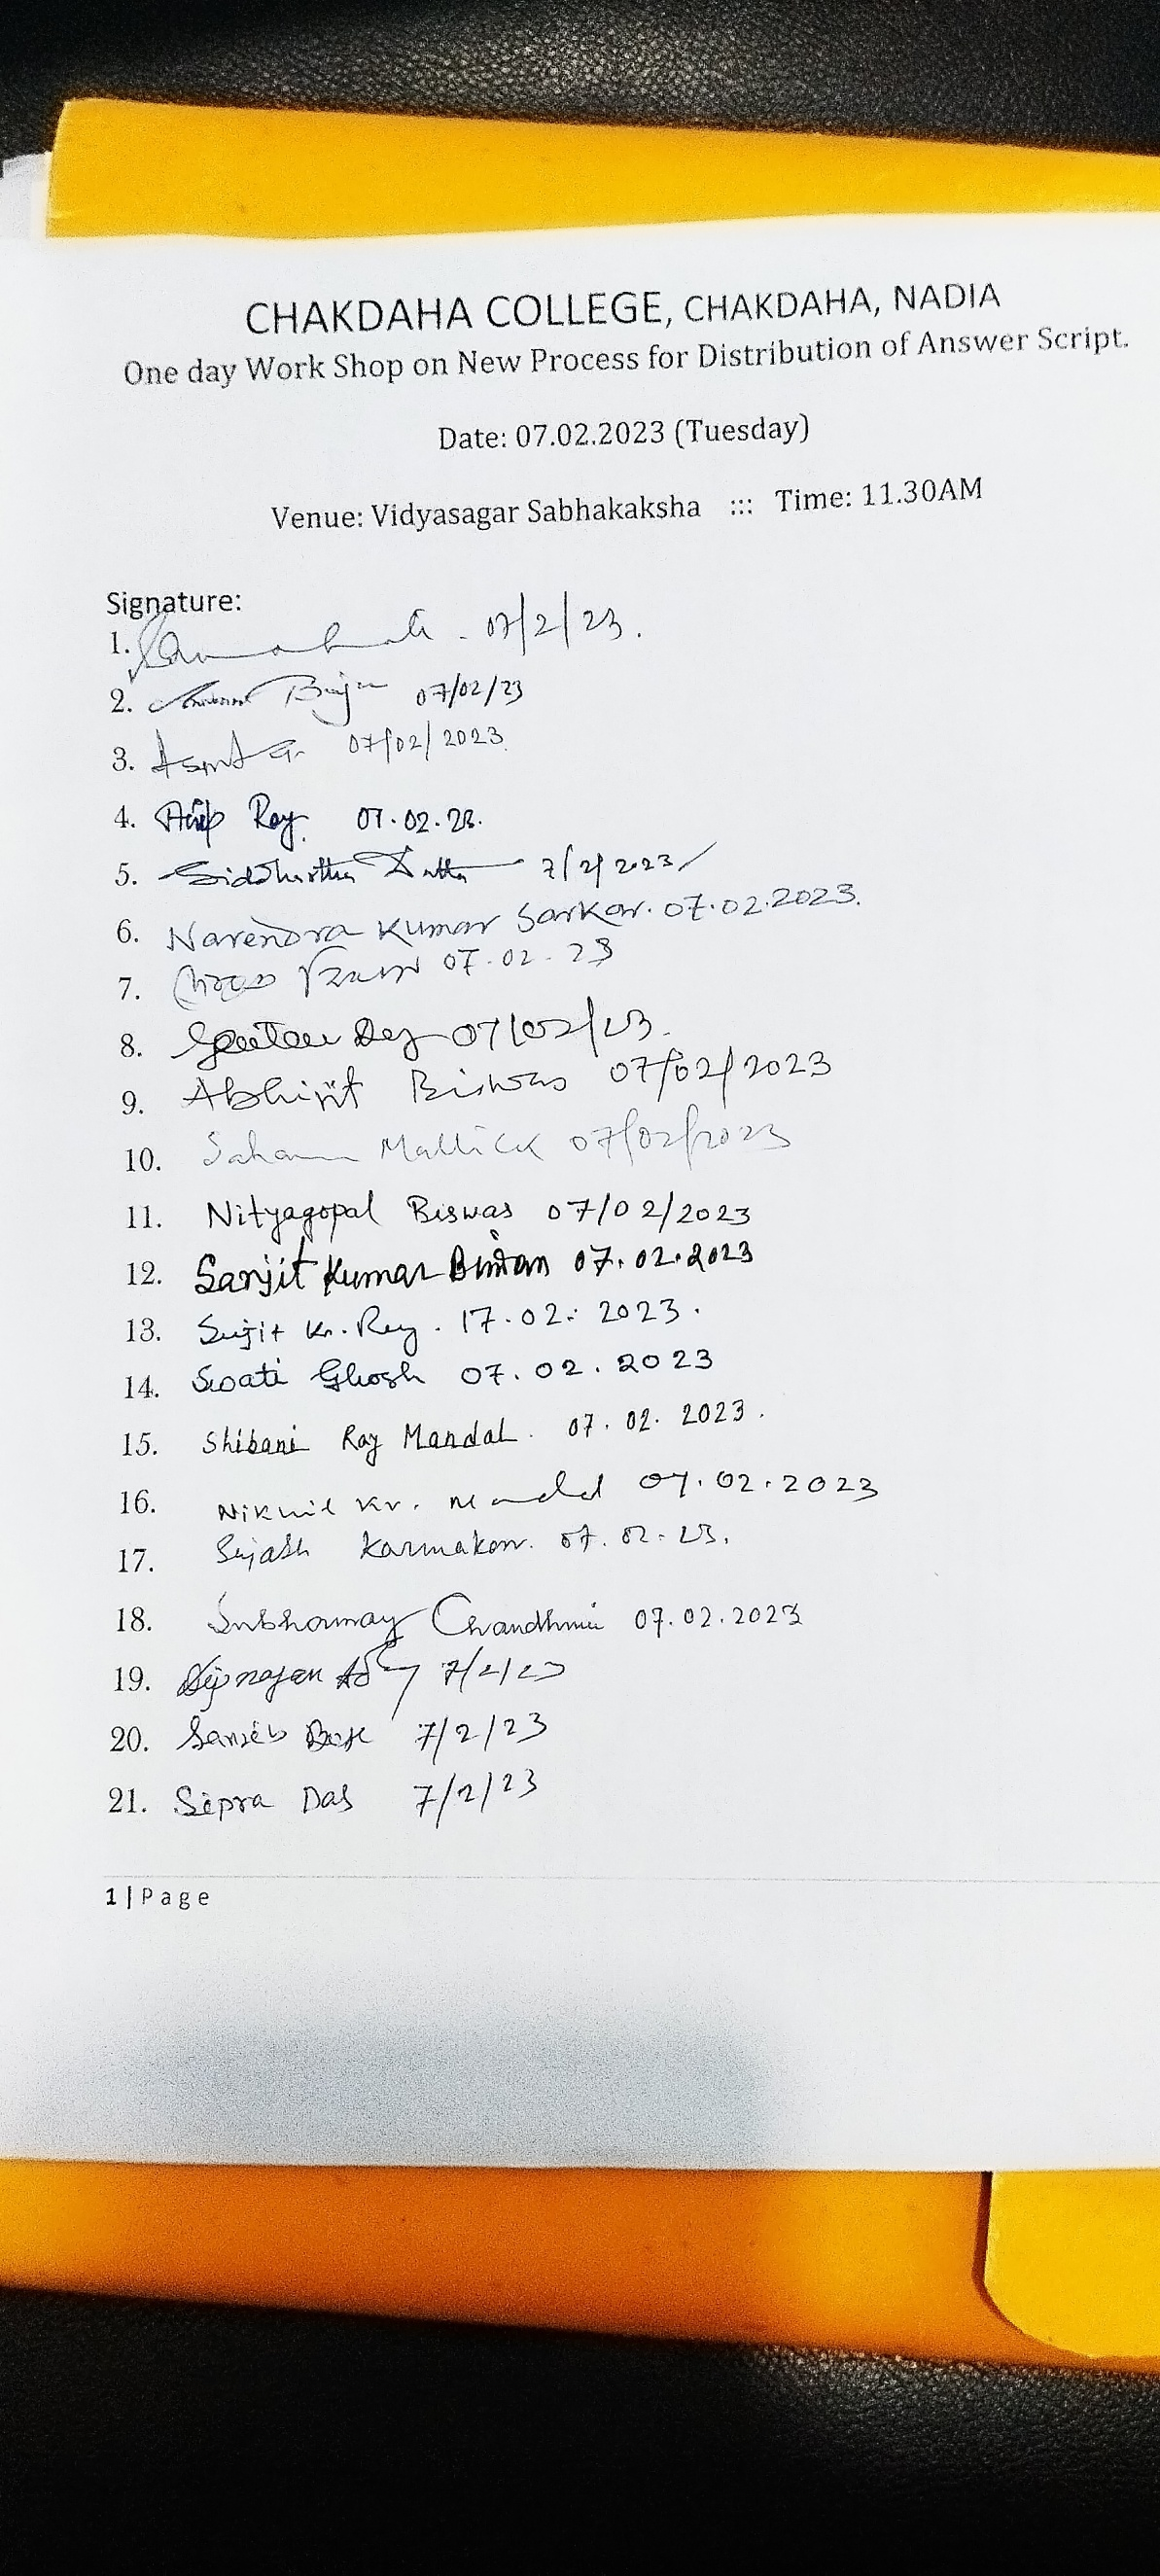 CHAKDAHA COLLEGE, CHAKDAHA, NADIA
One day Work Shop on New Process for Distribution of Answer Script.
Date: 07.02.2023 (Tuesday)
Venue: Vidyasagar Sabhakaksha ::: Time: 11.30AM
Signature:
1. 07/2/23.
2. 07/02/23
3. 07/02/2023
4. Roy. 07.02.23.
5. Siddhartha Dutta 7/2/2023
6. Narendra Kumar Sarkar. 07.02.2023.
7. 07.02.23
8. Goutam Dey 07/02/23.
9. Abhijit Biswas 07/02/2023
10. Mallick 07/02/2023
11. Nityagopal Biswas 07/02/2023
12. Sanjit Kumar 07.02.2023
13. Sujit Kr. Roy. 17.02.2023.
14. Swati Ghosh 07.02.2023
15. Shibani Roy Mandal. 07.02.2023.
16. Nikhil Kr. Mandal 07.02.2023
17. Karmakar. 07.02.23.
18. Subhamay Chaudhuri 07.02.2023
19. 7/2/23
20. 7/2/23
21. Sipra Das 7/2/23
1 | Page